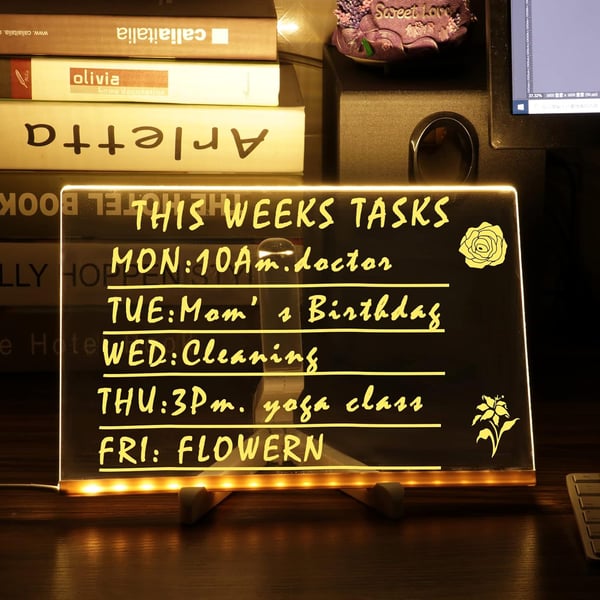 www.callaitalia.com
callaitalia
olivia
Arletta
THE HOTEL BOOK
Sweet Love
THIS WEEKS TASKS
MON:10Am.doctor
TUE:Mom's Birthdag
WED:Cleaning
THU:3Pm. yoga class
FRI: FLOWERN